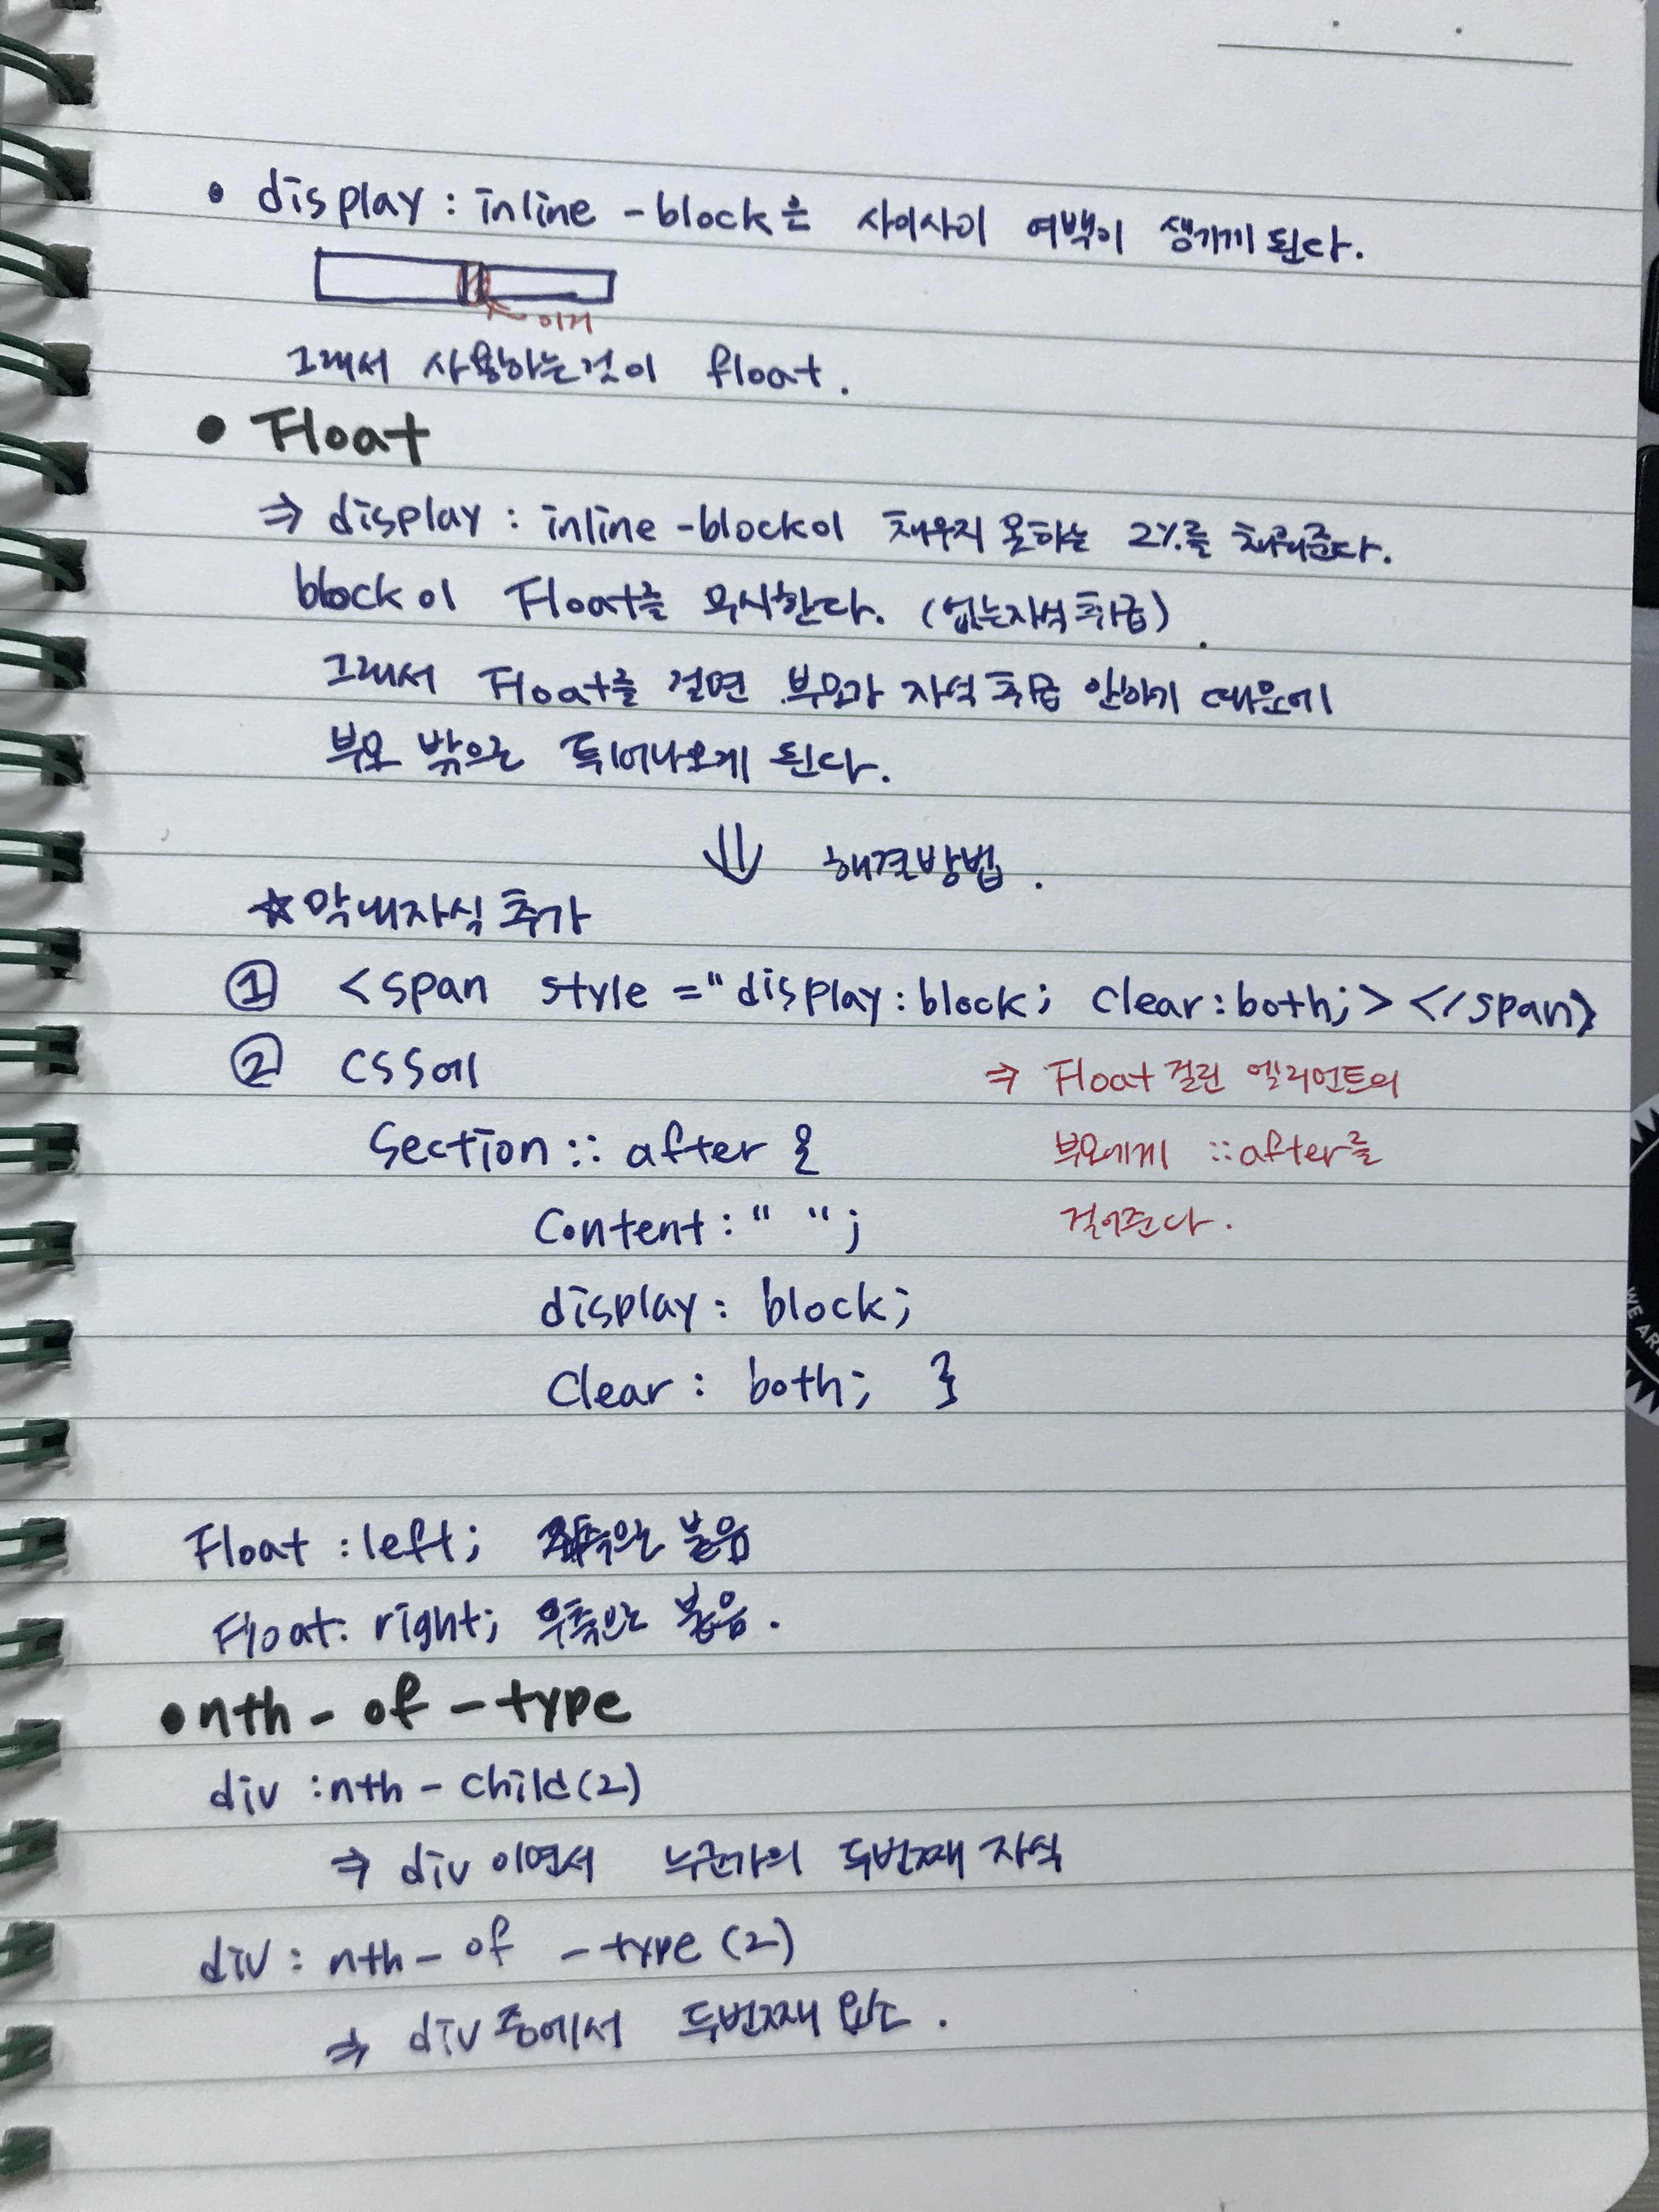 • display : inline -block은 사이사이 여백이 생기게 된다.
이거
그래서 사용하는것이 float.
• Float
⇒ display : inline -block이 채우지 못하는 2%를 채워준다.
block이 Float를 무시한다. (없는자식 취급)
그래서 Float를 걸면 부모가 자식 취급 안하기 때문에
부모 밖으로 튀어나오게 된다.
⇓ 해결방법.
☆막내자식 추가
① <span style ="display:block; clear:both;></span>
② CSS에
⇒ Float 걸린 엘리먼트의
Section :: after {
부모에게 ::after를
Content : " ";
걸어준다.
display : block;
Clear : both; }
Float : left; 좌측으로 붙음
Float: right; 우측으로 붙음.
• nth - of - type
div :nth - child(2)
⇒ div 이면서 누군가의 두번째 자식
div : nth - of - type (2)
⇒ div 중에서 두번째 요소.
WE ARE